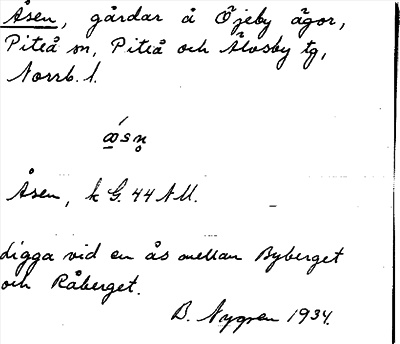 Åsen, gårdar å Öjeby ägor,
Piteå sn, Piteå och Älvsby tg,
Norrb. l.
ǻsn̥
Åsen, k G. 44 NU.
ligga vid en ås mellan Byberget
och Råberget.
B. Nygren 1934.